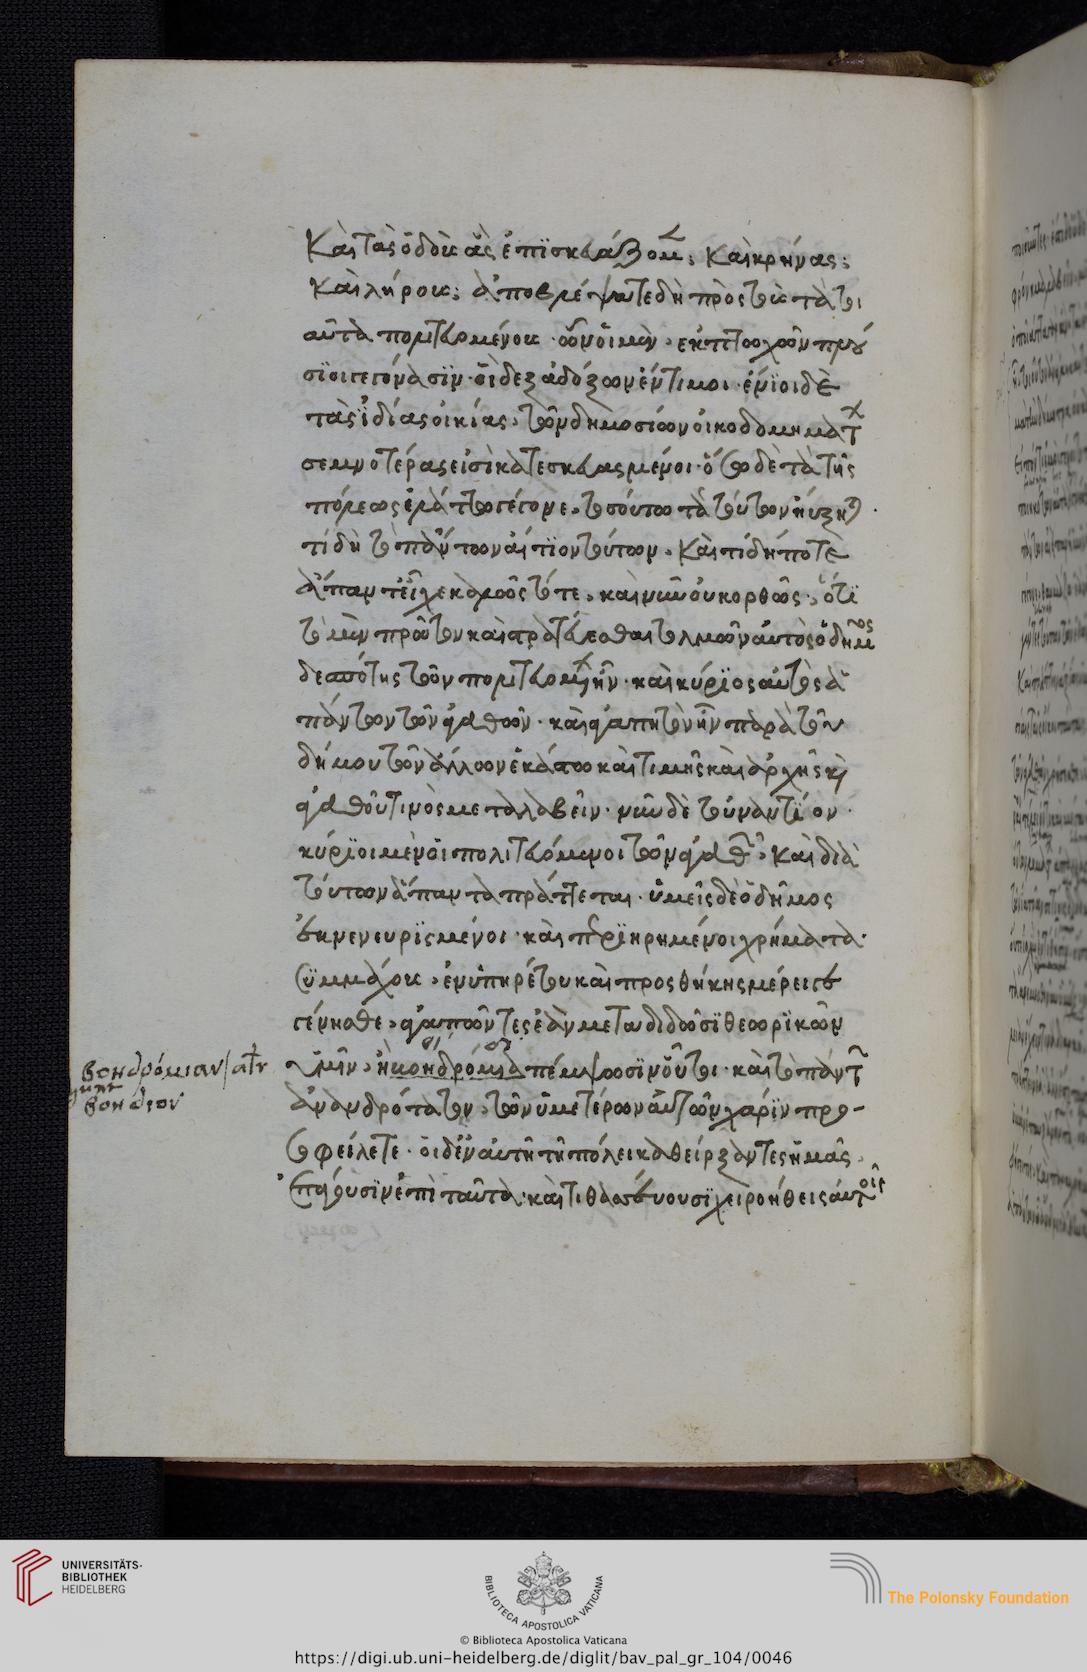 Καὶ τὰς ὁδοὺς ἃς ἐπισκευάζομεν; καὶ κρήνας;
καὶ λήρους; ἀποβλέψατε δὴ πρὸς τοὺς ταῦτα τοι
αῦτα πολιτευομένους. ὧν οἱ μὲν, ἐκ πτωχῶν πλού
σιοι γεγόνασιν. οἱ δ' ἐξ ἀδόξων ἔντιμοι. ἔνιοι δὲ
τὰς ἰδίας οἰκίας, τῶν δημοσίων οἰκοδομημάτ
σεμνοτέρας εἰσὶ κατεσκευασμένοι. ὅσω δὲ τὰ τῆς
πόλεως ἐλάττω γέγονε, τοσούτω τὰ τούτων ηὔξητ.
τί δὴ τὸ πάντων αἴτιον τούτων, καὶ τί δήποτε
ἅπαντ' εἶχε καλῶς τότε, καὶ νῦν οὐκ ὀρθῶς, ὅτι
τὸ μὲν πρῶτον καὶ στρατεύεσθαι τολμῶν αὐτὸς ὁ δῆμος
δεσπότης τῶν πολιτευομ ἦν. καὶ κύριος αὐτὸς ἁ
πάντων τῶν ἀγαθῶν. καὶ ἀγαπητὸν ἦν παρὰ τοῦ
δήμου τῶν ἄλλων ἑκάστω καὶ τιμῆς καὶ ἀρχῆς κὶ
ἀγαθοῦ τινὸς μεταλαβεῖν. νῦν δὲ τοὐναντίον.
κύριοι μὲν οἱ πολιτευόμενοι τῶν ἀγαθ, καὶ διὰ
τούτων ἅπαντα πράττεται. ὑμεῖς δὲ ὁ δῆμος
ἐκνενευρισμένοι. καὶ περιηρημένοι χρήματα.
συμμάχους, ἐν ὑπηρέτου καὶ προσθήκης μέρει γε
γένησθε, ἀγαπῶντες ἐὰν μεταδιδῶσι θεωρικῶν
ὑμῖν, ἢ βοηδρόμια πέμψωσιν οὗτοι. καὶ τὸ πάντ
ἀνανδρότατον, τῶν ὑμετέρων αὐτῶν χάριν προ-
σοφείλετε. οἱ δ' ἐν αὐτῇ τῇ πόλει καθείρξαντες ἡμᾶς.
ἐπάγουσιν ἐπὶ ταῦτα. καὶ τιθασεύουσι χειροήθεις αὐτοῖς
βοηδρόμιαν
βοηδιον
UNIVERSITÄTS-
BIBLIOTHEK
HEIDELBERG
BIBLIOTECA APOSTOLICA VATICANA
The Polonsky Foundation
© Biblioteca Apostolica Vaticana
https://digi.ub.uni-heidelberg.de/diglit/bav_pal_gr_104/0046